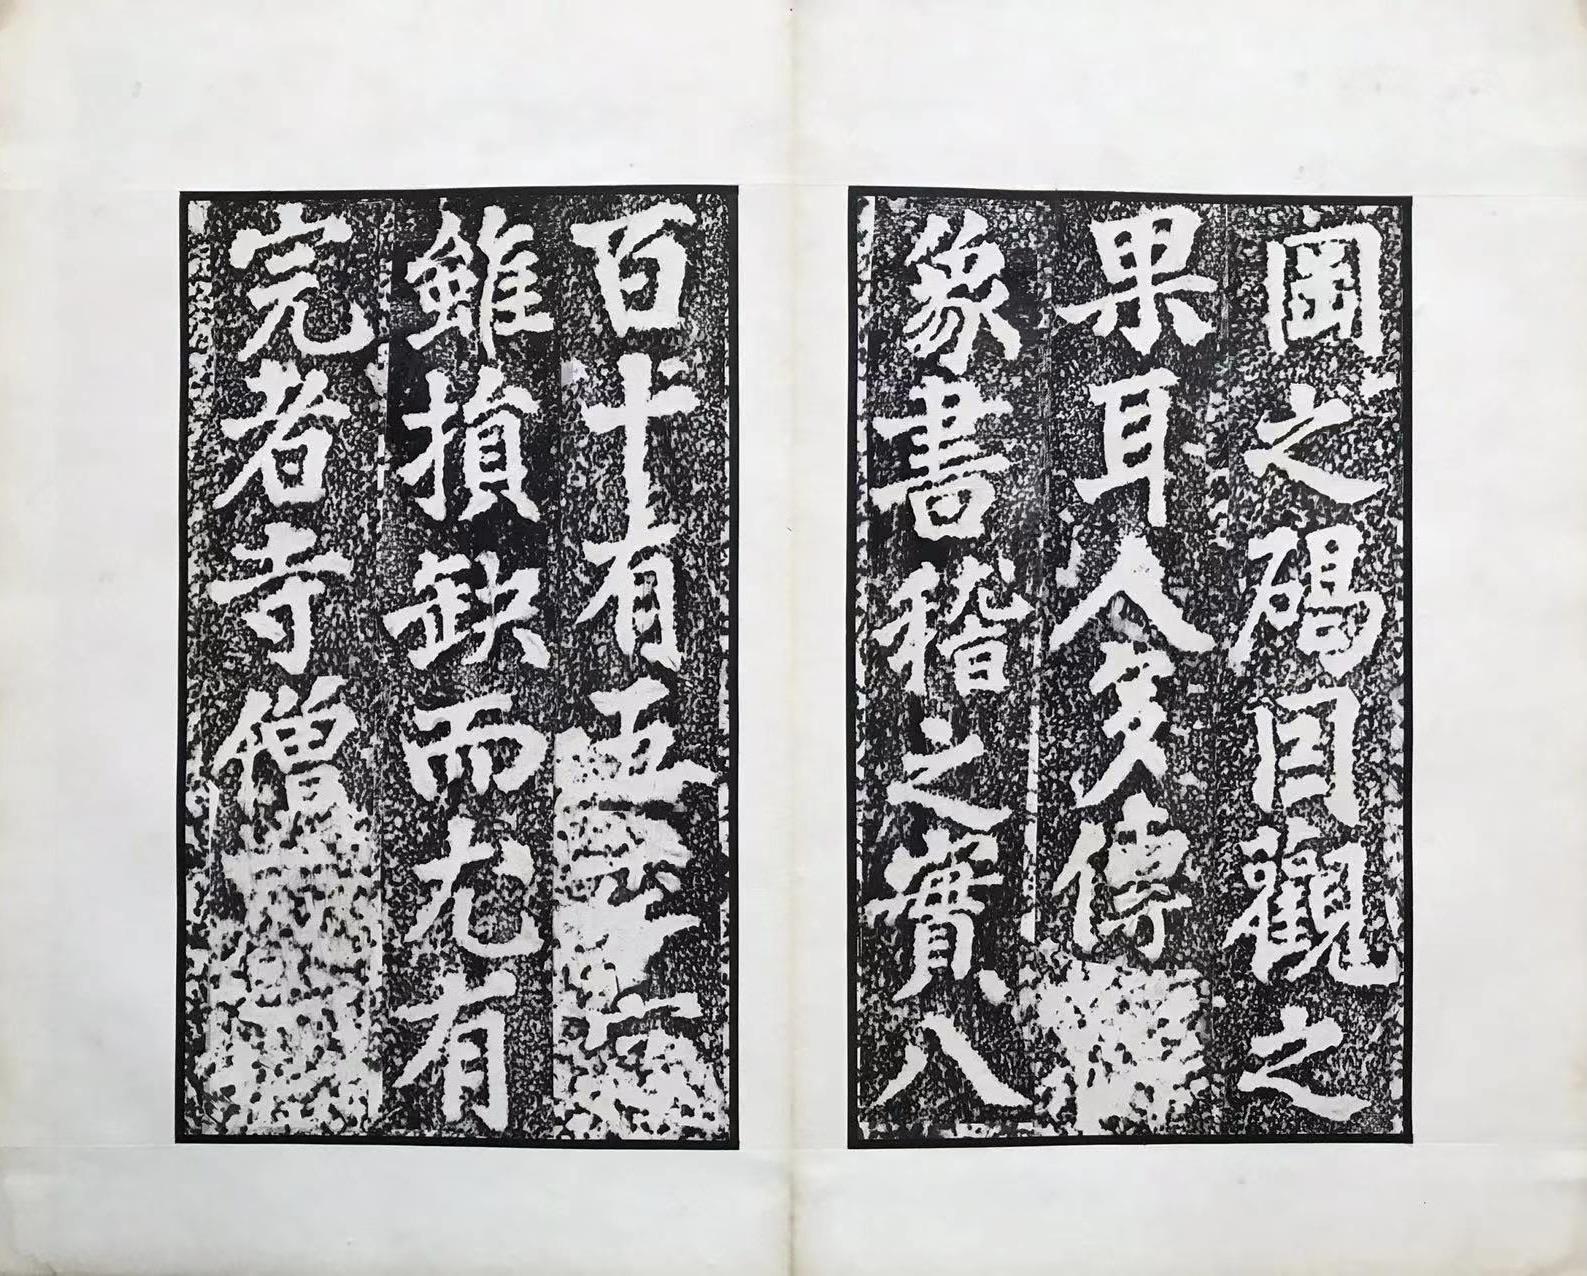 岡之碣目觀之
果耳人多傳
篆書稽之實八
百十有五
雖損缺而尤有
完者寺僧